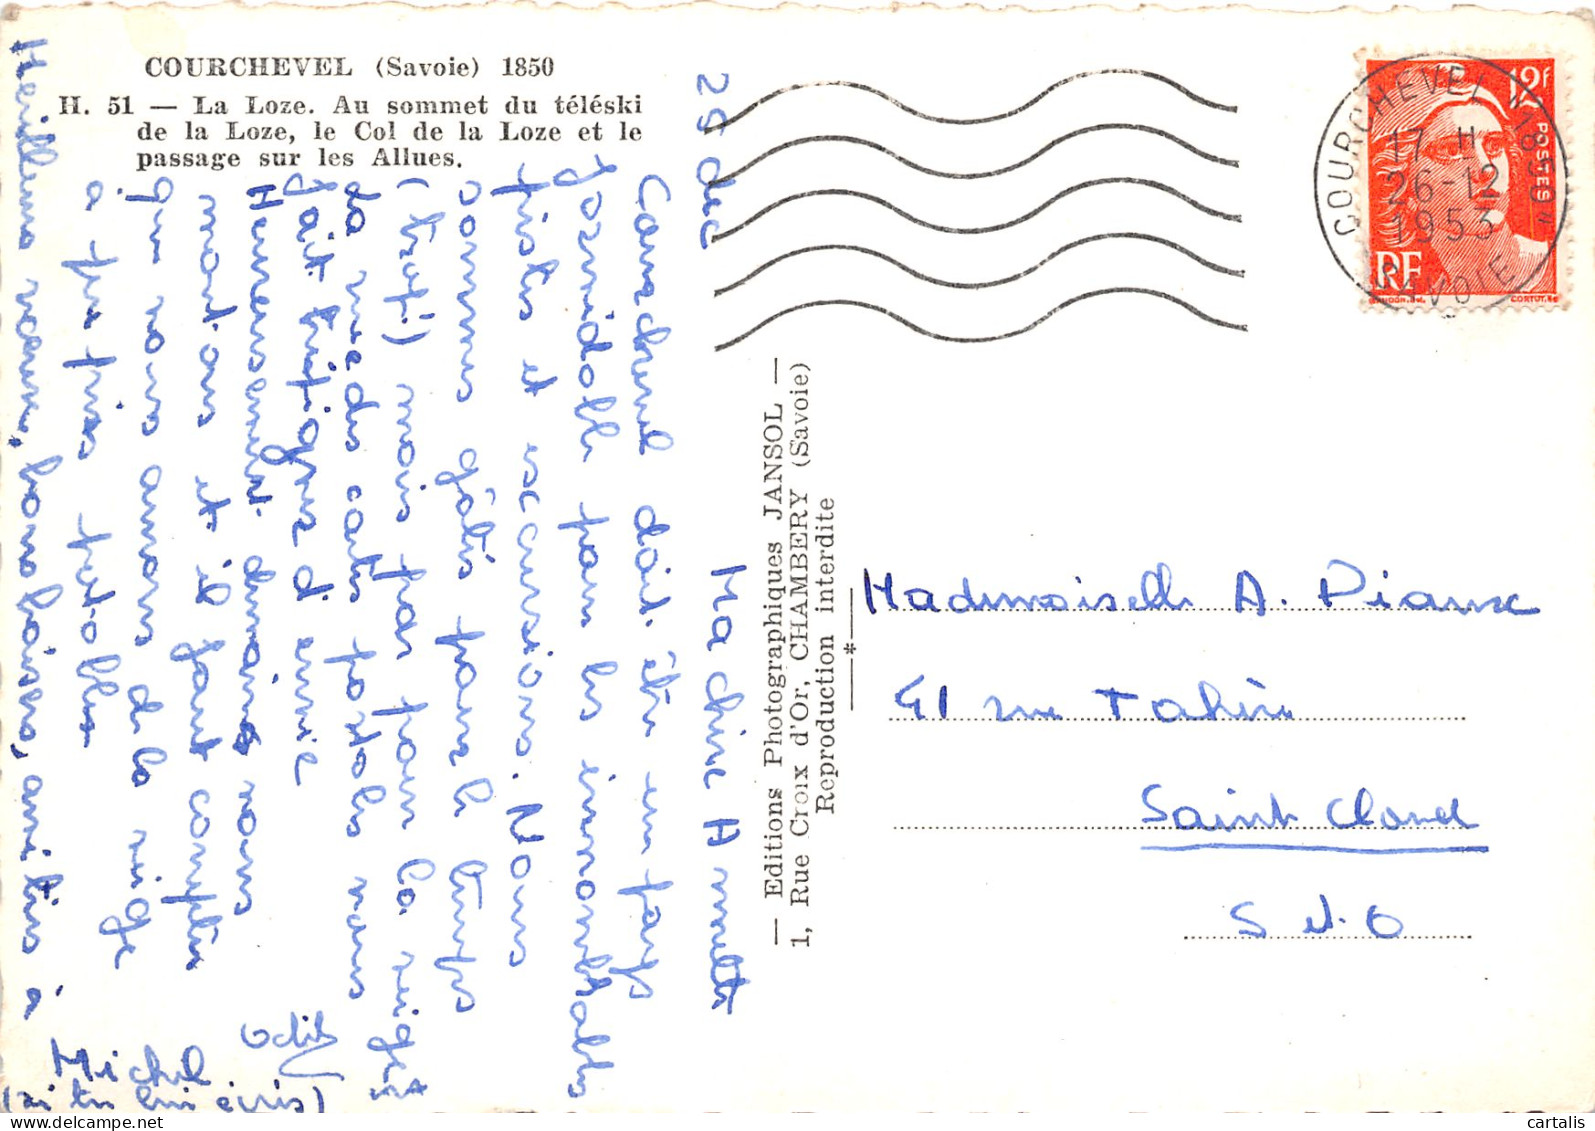 COURCHEVEL (Savoie) 1850
H. 51 — La Loze. Au sommet du téléski
de la Loze, le Col de la Loze et le
passage sur les Allues.
25 déc
Ma chère Annette
Courchevel doit être un pays
formidable pour les innombrables
pistes et excursions. Nous
sommes gâtés pour le temps
mais pas pour la neige
la vue des cartes postales nous
fait d'envie
Heureusement nous
montons et il faut compter
que nous aurons de la neige
à peu près potable
Meilleurs vœux, bons baisers, amitiés à
Michel
Odile
— Editions Photographiques JANSOL —
1, Rue Croix d'Or, CHAMBERY (Savoie)
Reproduction interdite
COURCHEVEL "1850"
17 H
26-12
1953
SAVOIE
12F
POSTES
RF
GANDON.Del.
CORTOT.Sc
Mademoiselle A.
41 rue Tahère
Saint Cloud
S et O
cartalis